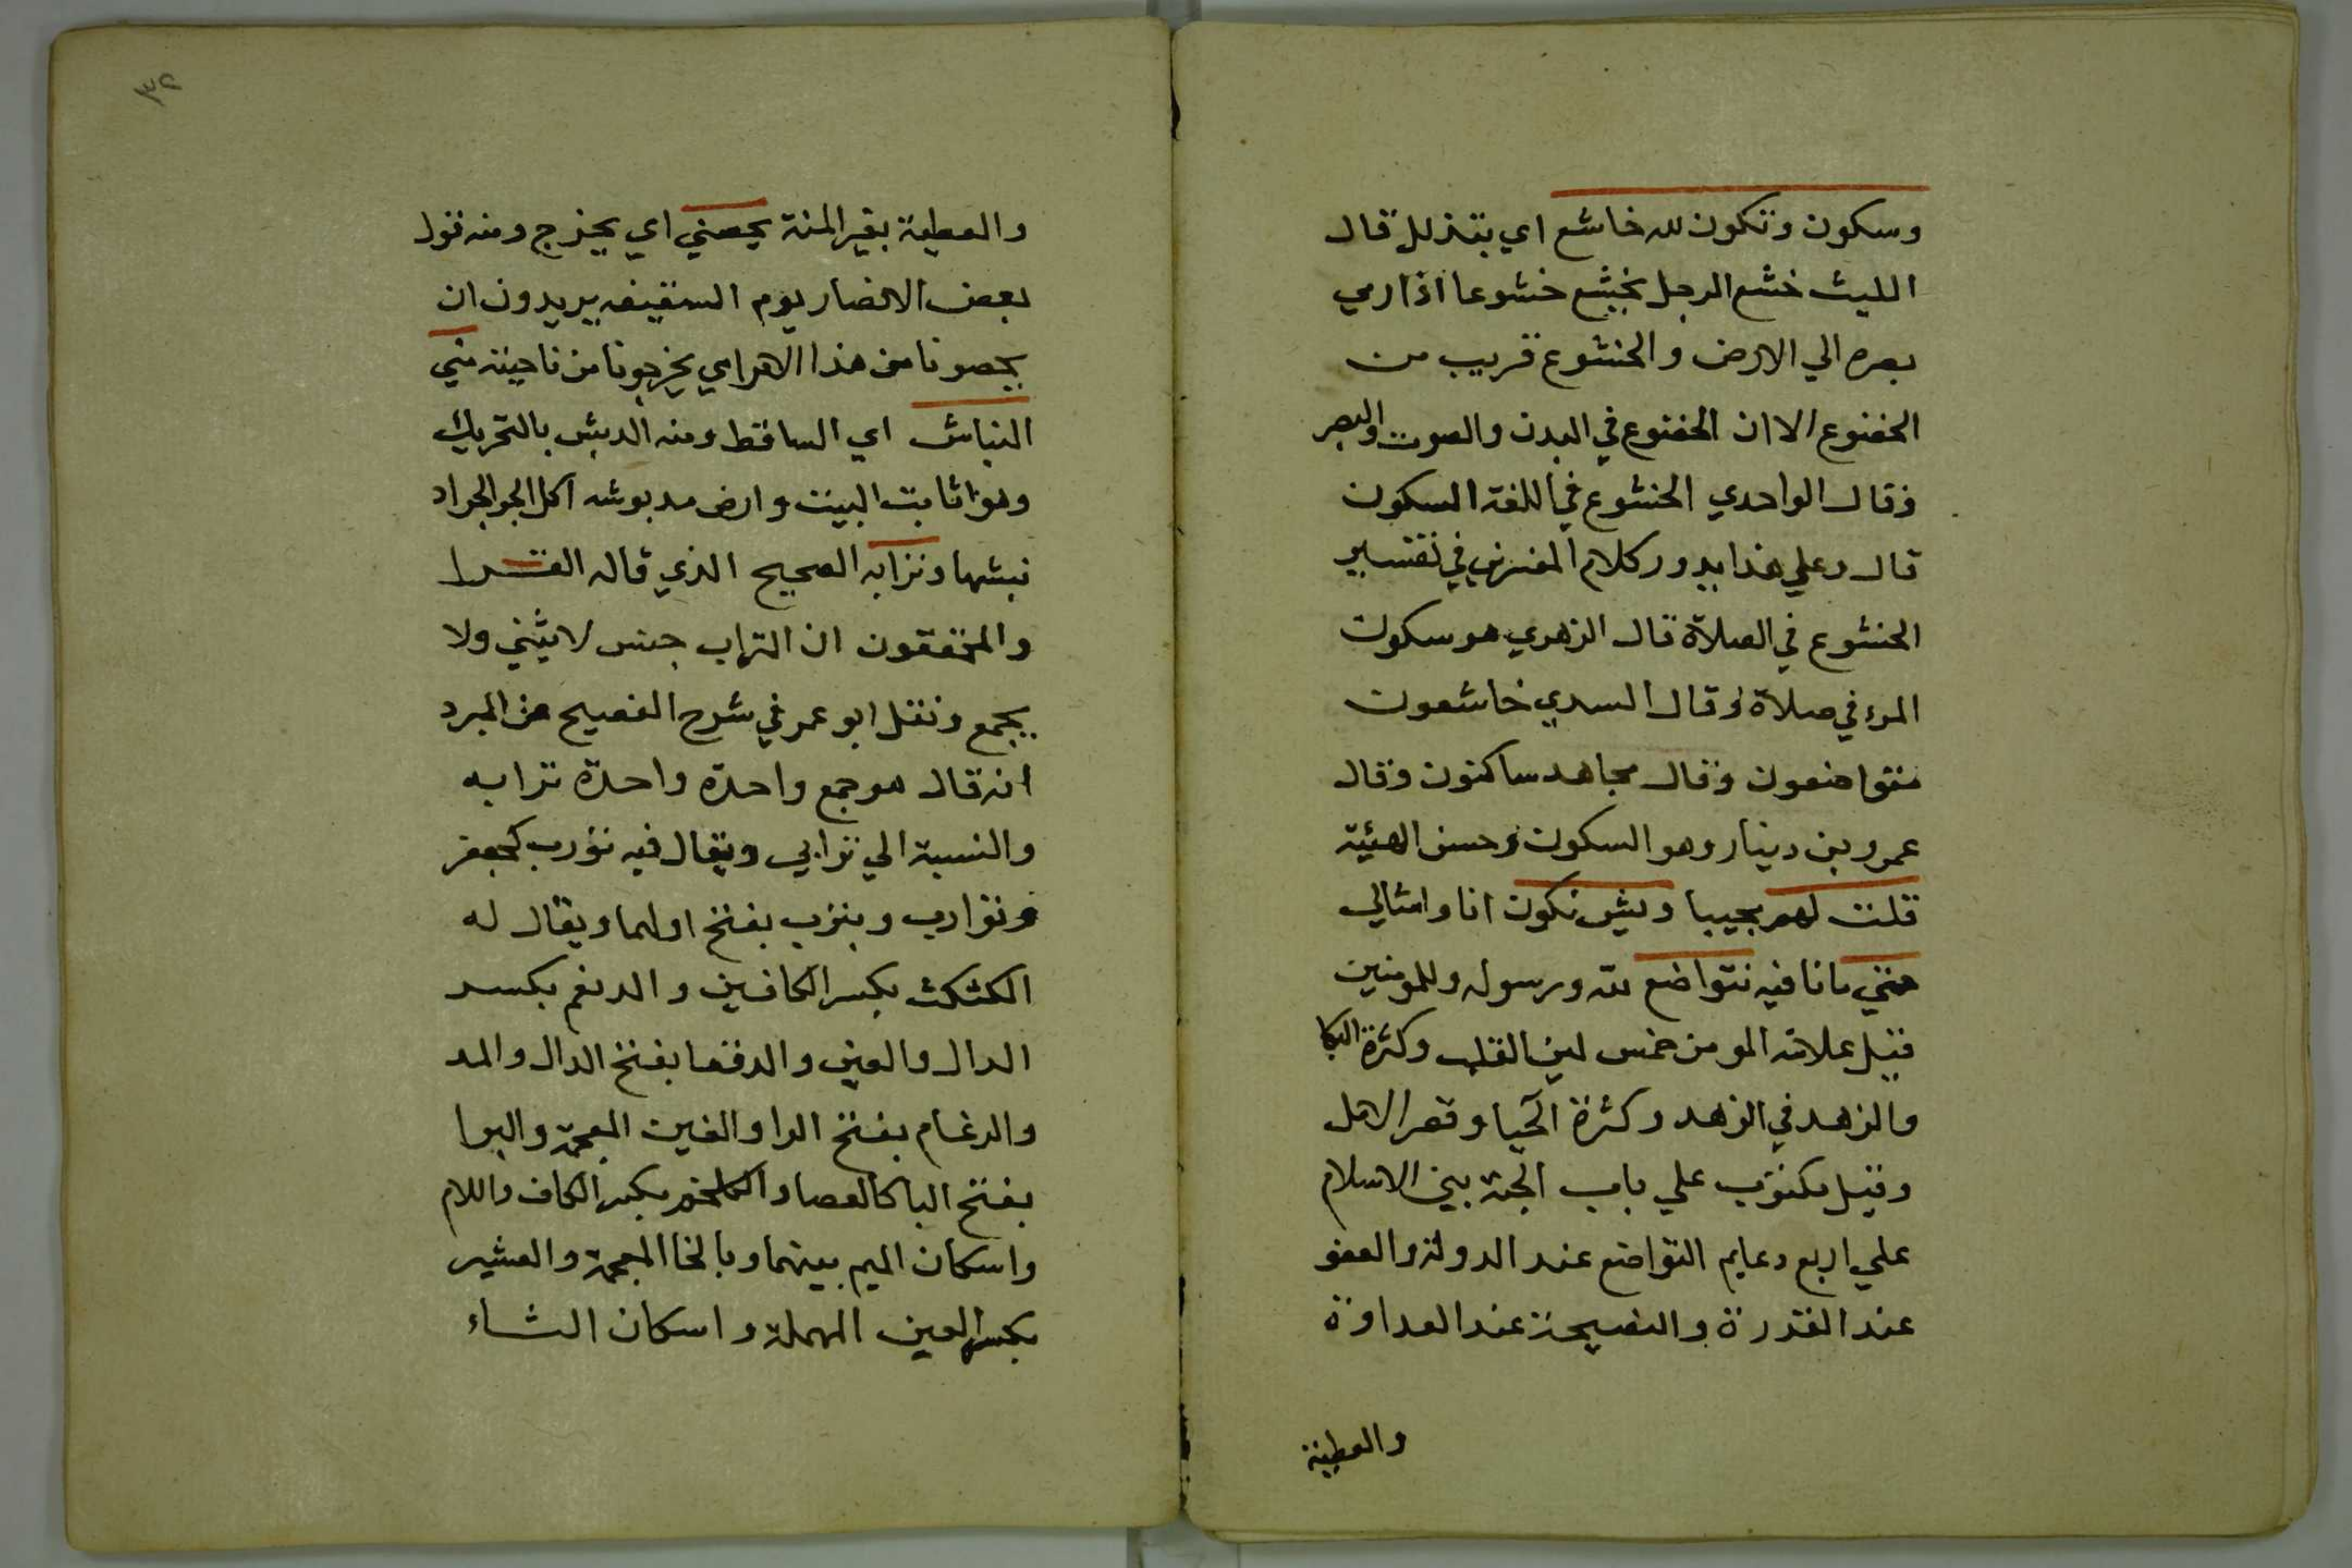 وسكون وتكون لله خاشع اي بتذلل قال
الليث خشع الرجل يخشع خشوعا اذا رمي
بصره الي الارض والخشوع قريب من
الخضوع الا ان الخضوع في البدن والصوت والبصر
وقال الواحدي الخشوع في اللغة السكون
قال وعلي هذا يدور كلام المفسرين في تفسير
الخشوع في الصلاة قال الزهري هو سكون
المرء في صلاة وقال السدي خاشعون
متواضعون وقال مجاهد ساكنون وقال
عمرو بن دينار وهو السكون وحسن الهيئة
قلت لهم مجيبا وبش نكون انا وامثالي
حتي مانا فيه نتواضع لله ورسوله وللمومنين
قيل علامة المومن خمس لين القلب وكثرة البكا
والزهد في الزهد وكثرة الحيا وقصر الامل
وقيل مكتوب علي باب الجنة بني الاسلام
علي اربع دعايم التواضع عند الدولة والعفو
عند القدرة والنصيحة عند العداوة
والعطية
٣٢
والعطية بغير المنة يحصني اي يخرج ومنه قول
بعض الانصار يوم السقيفه يريدون ان
يحصونا من هذا الامر اي يخرجونا من ناحية مني
النباش اي الساقط ومنه الدبش بالتحريك
وهو اثاث البيت وارض مدبوشه اكل الجراد
نبشها ونزابه الصحيح الذي قاله الفرا
والمحققون ان التراب جنس لا يثني ولا
يجمع ونقل ابو عمر في شرح الفصيح عن المبرد
انه قال هو جمع واحدة واحدة ترابه
والنسبة الي ترابي ويقال فيه تورب كجعفر
وتوارب وبتزب بفتح اولها ويقال له
الكثكث بكسر الكافين والدقعم بكسر
الدال والعين والدقعا بفتح الدال والمد
والرغام بفتح الرا والغين المعجمة والبرا
بفتح البا كالعصا والكلمخم بكسر الكاف واللام
واسكان الميم بينهما وبالخا المعجمة والعثير
بكسر العين المهملة واسكان الثاء